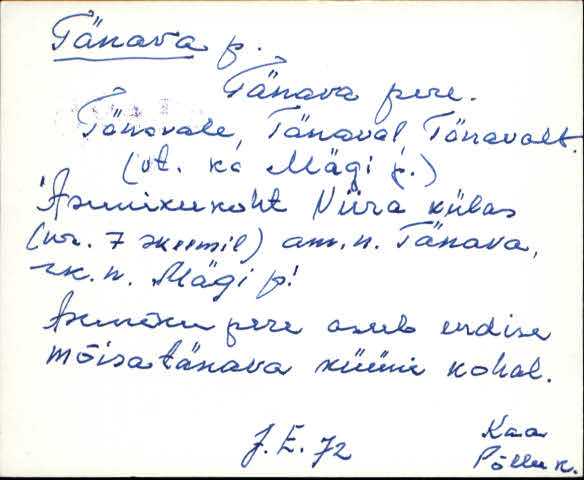 Tänava p.
Tänava pere.
Tänavale, Tänaval, Tänavalt.
(vt. ka Mägi p.)
Asunikukoht Viira külas
(nr. 7 skeemil) am.n. Tänava,
rk.n. Mägi p!
Asuniku pere asub endise
mõisa tänava küüni kohal.
J.E. 72
Kaa
Põllu k.